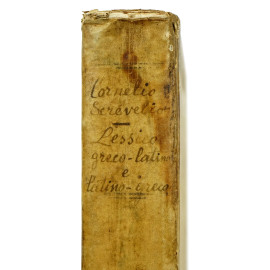 Cornelio
Screvelio
Lessico
greco-latino
e
latino-greco